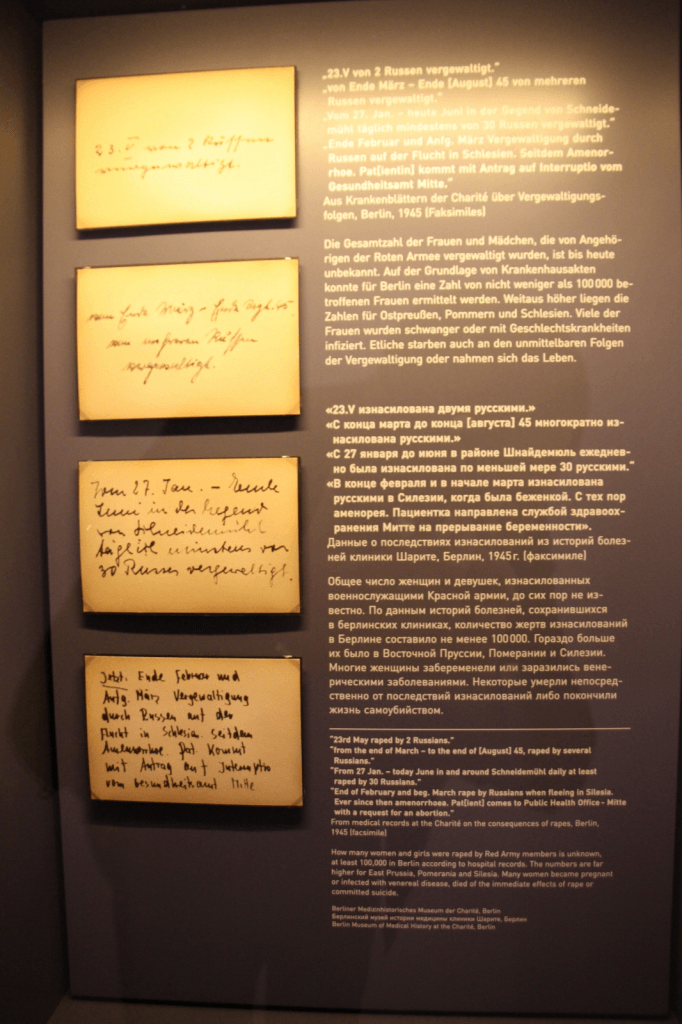 23.V von 2 Russen
vergewaltigt.
von Ende März – Ende
von mehreren Russen
vergewaltigt.
Vom 27. Jan. – Ende
Juni in der Gegend
von Schneidemühl
täglich minstens von
30 Russen vergewaltigt.
Jetzt: Ende Februar und
Anfg. März Vergewaltigung
durch Russen auf der
Flucht in Schlesien. Seitdem
Amenorrhoe. Pat. kommt
mit Antrag auf Interruptio
vom Gesundheitsamt Mitte
„23.V von 2 Russen vergewaltigt.“
„von Ende März – Ende [August] 45 von mehreren
Russen vergewaltigt.“
„Vom 27. Jan. – heute Juni in der Gegend von Schneide-
mühl täglich mindestens von 30 Russen vergewaltigt.“
„Ende Februar und Anfg. März Vergewaltigung durch
Russen auf der Flucht in Schlesien. Seitdem Amenor-
rhoe. Pat[ientin] kommt mit Antrag auf Interruptio vom
Gesundheitsamt Mitte.“
Aus Krankenblättern der Charité über Vergewaltigungs-
folgen, Berlin, 1945 (Faksimiles)
Die Gesamtzahl der Frauen und Mädchen, die von Angehö-
rigen der Roten Armee vergewaltigt wurden, ist bis heute
unbekannt. Auf der Grundlage von Krankenhausakten
konnte für Berlin eine Zahl von nicht weniger als 100 000 be-
troffenen Frauen ermittelt werden. Weitaus höher liegen die
Zahlen für Ostpreußen, Pommern und Schlesien. Viele der
Frauen wurden schwanger oder mit Geschlechtskrankheiten
infiziert. Etliche starben auch an den unmittelbaren Folgen
der Vergewaltigung oder nahmen sich das Leben.
«23.V изнасилована двумя русскими.»
«С конца марта до конца [августа] 45 многократно из-
насилована русскими.»
«С 27 января до июня в районе Шнайдемюль ежеднев-
но была изнасилована по меньшей мере 30 русскими.”
«В конце февраля и в начале марта изнасилована
русскими в Силезии, когда была беженкой. С тех пор
аменорея. Пациентка направлена службой здравоох-
ранения Митте на прерывание беременности».
Данные о последствиях изнасилований из историй болез-
ней клиники Шарите, Берлин, 1945 г. (факсимиле)
Общее число женщин и девушек, изнасилованных
военнослужащими Красной армии, до сих пор не из-
вестно. По данным историй болезней, сохранившихся
в берлинских клиниках, количество жертв изнасилований
в Берлине составило не менее 100 000. Гораздо больше
их было в Восточной Пруссии, Померании и Силезии.
Многие женщины забеременели или заразились вене-
рическими заболеваниями. Некоторые умерли непосред-
ственно от последствий изнасилований либо покончили
жизнь самоубийством.
“23rd May raped by 2 Russians.”
“from the end of March – to the end of [August] 45, raped by several
Russians.”
“From 27 Jan. – today June in and around Schneidemühl daily at least
raped by 30 Russians.”
“End of February and beg. March rape by Russians when fleeing in Silesia.
Ever since then amenorrhoea. Pat[ient] comes to Public Health Office - Mitte
with a request for an abortion.”
From medical records at the Charité on the consequences of rapes, Berlin,
1945 (facsimile)
How many women and girls were raped by Red Army members is unknown,
at least 100,000 in Berlin according to hospital records. The numbers are far
higher for East Prussia, Pomerania and Silesia. Many women became pregnant
or infected with venereal disease, died of the immediate effects of rape or
committed suicide.
Berliner Medizinhistorisches Museum der Charité, Berlin
Берлинский музей истории медицины клиники Шарите, Берлин
Berlin Museum of Medical History at the Charité, Berlin